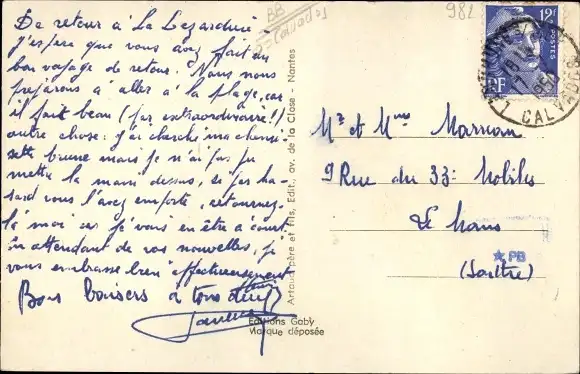 De retour à La Lézardière
j'espère que vous avez fait un
bon voyage de retour. Nous nous
préparons à aller à la plage, car
il fait beau (par extraordinaire!)
autre chose: j'ai cherché ma chemi-
sette brune mais je n'ai pas pu
mettre la main dessus, si par ha-
sard vous l'avez emporté, retournez-
là moi car je vais en être à court.
En attendant de vos nouvelles, je
vous embrasse bien affectueusement
Bons baisers à tous deux
BB
982
12F
POSTES
RF
CALVADOS
Mr et Mme
9 Rue du 33: Mobiles
Le Mans
(Sarthe)
PB
Artaud père et fils, Edit., av. de la Close - Nantes
Editions Gaby
Marque déposée